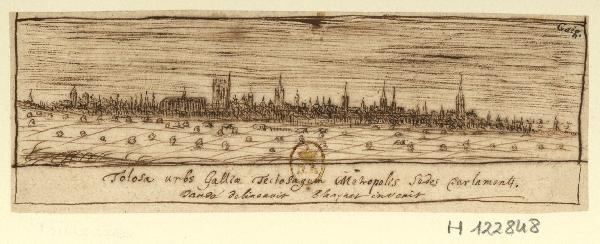 Gaig.
Tolosa urbs Galliæ Tectosagum Metropolis Sedes Parlamenti.
delineavit invenit
H 122848